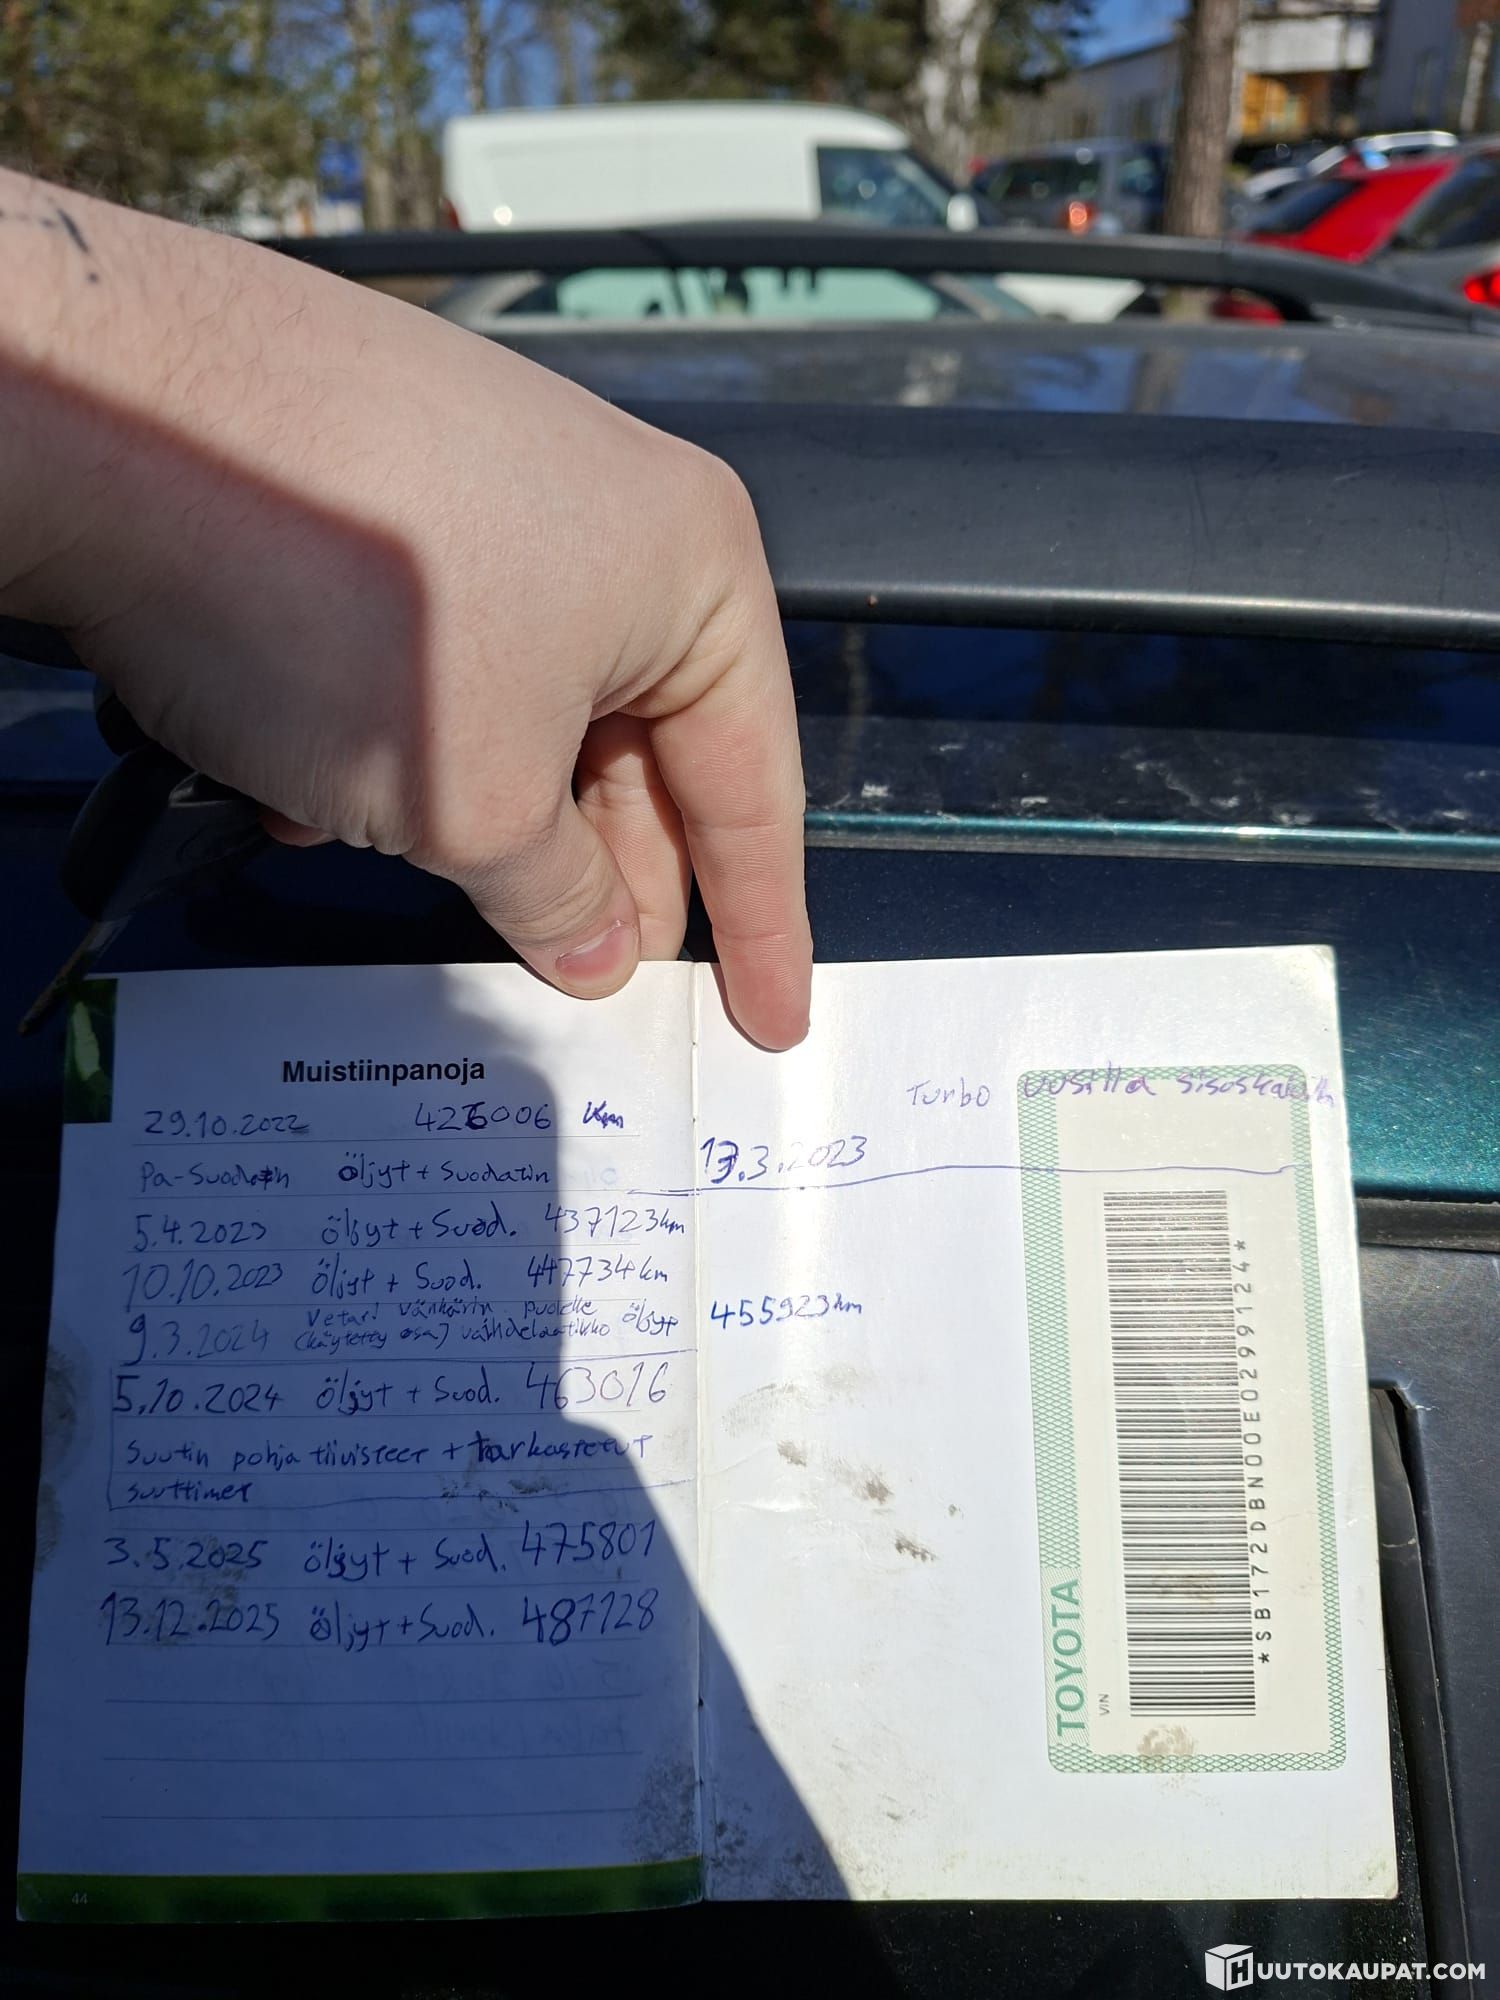 Muistiinpanoja
29.10.2022 426006 km
Pa-Suodatin öljyt + Suodatin
5.4.2023 öljyt + Suod. 437123km
10.10.2023 öljyt + Suod. 447734km
9.3.2024 Vetari vänkärin puolelle
(käytetty osa) vaihdelaatikko öljyt 455923km
5.10.2024 öljyt + Suod. 463016
Suutin pohja tiivisteet + tarkastetut
suuttimet
3.5.2025 öljyt + Suod. 475801
13.12.2025 öljyt + Suod. 487128
44
Turbo uusilla sisuskaluilla
13.3.2023
TOYOTA
VIN
*SB172DBN00E029912​4*
HUUTOKAUPAT.COM